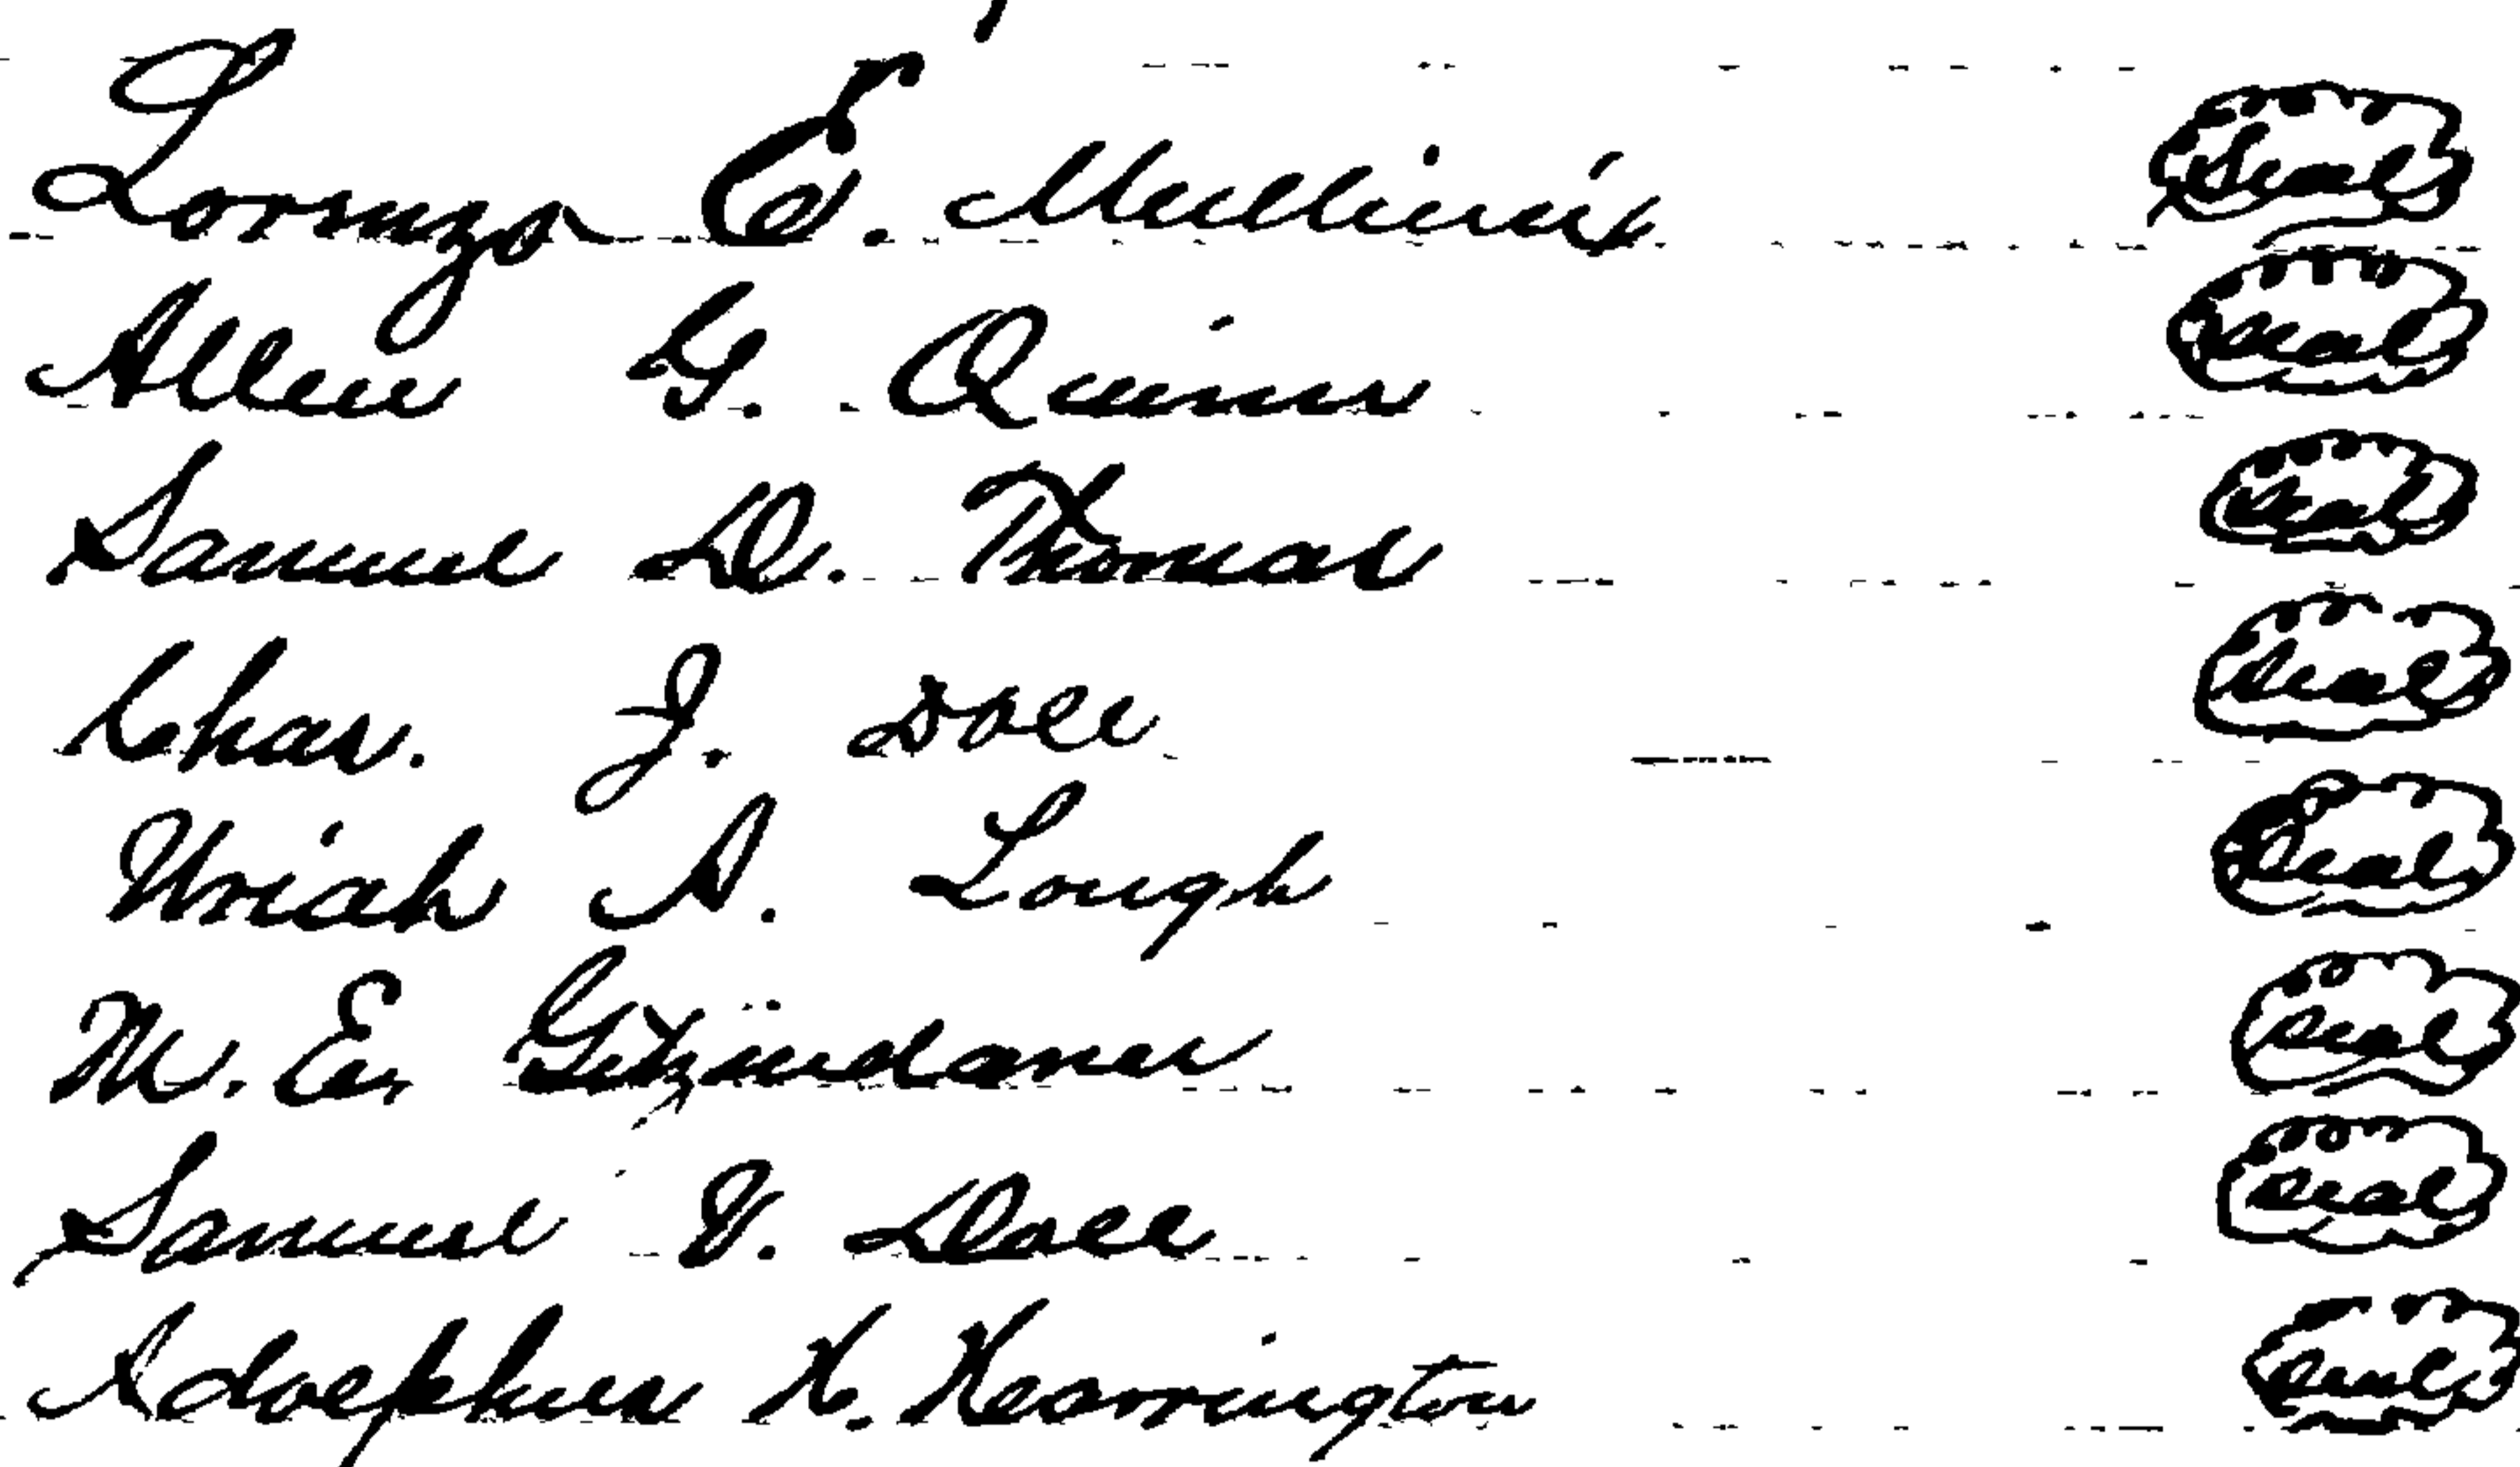 Lorenzo E. Mullinix Seal
Allen G. Quinn Seal
Samuel D. Thomas Seal
Chas. J. Doll Seal
Uriah A. Lough Seal
M. E. Seal
Samuel V. Doll Seal
Adolphus H. Harrington Seal